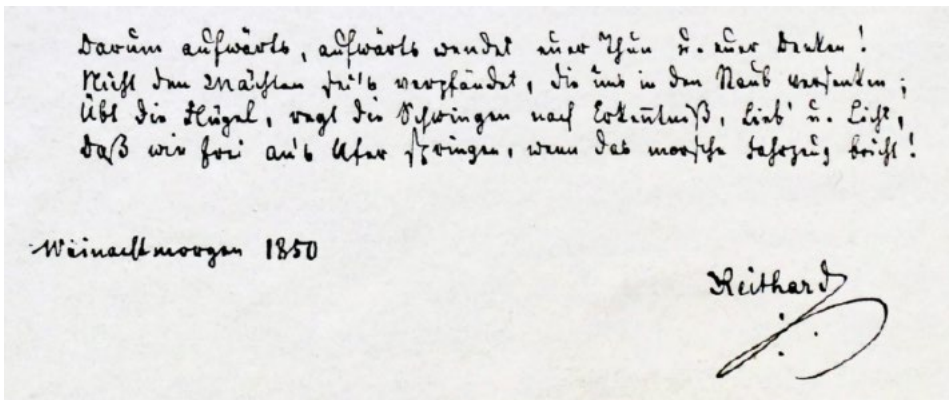 Darum aufwärts, aufwärts wendet euer Thun u. euer Denken!
Nicht den Mächten sei's verpfändet, die uns in den Staub versenken;
Übt die Flügel, regt die Schwingen nach Erkentniß, Lieb' u. Licht,
Daß wir frei an's Ufer springen, wenn das morsche Fahrzeug bricht!
Weinachtmorgen 1850
Reithard